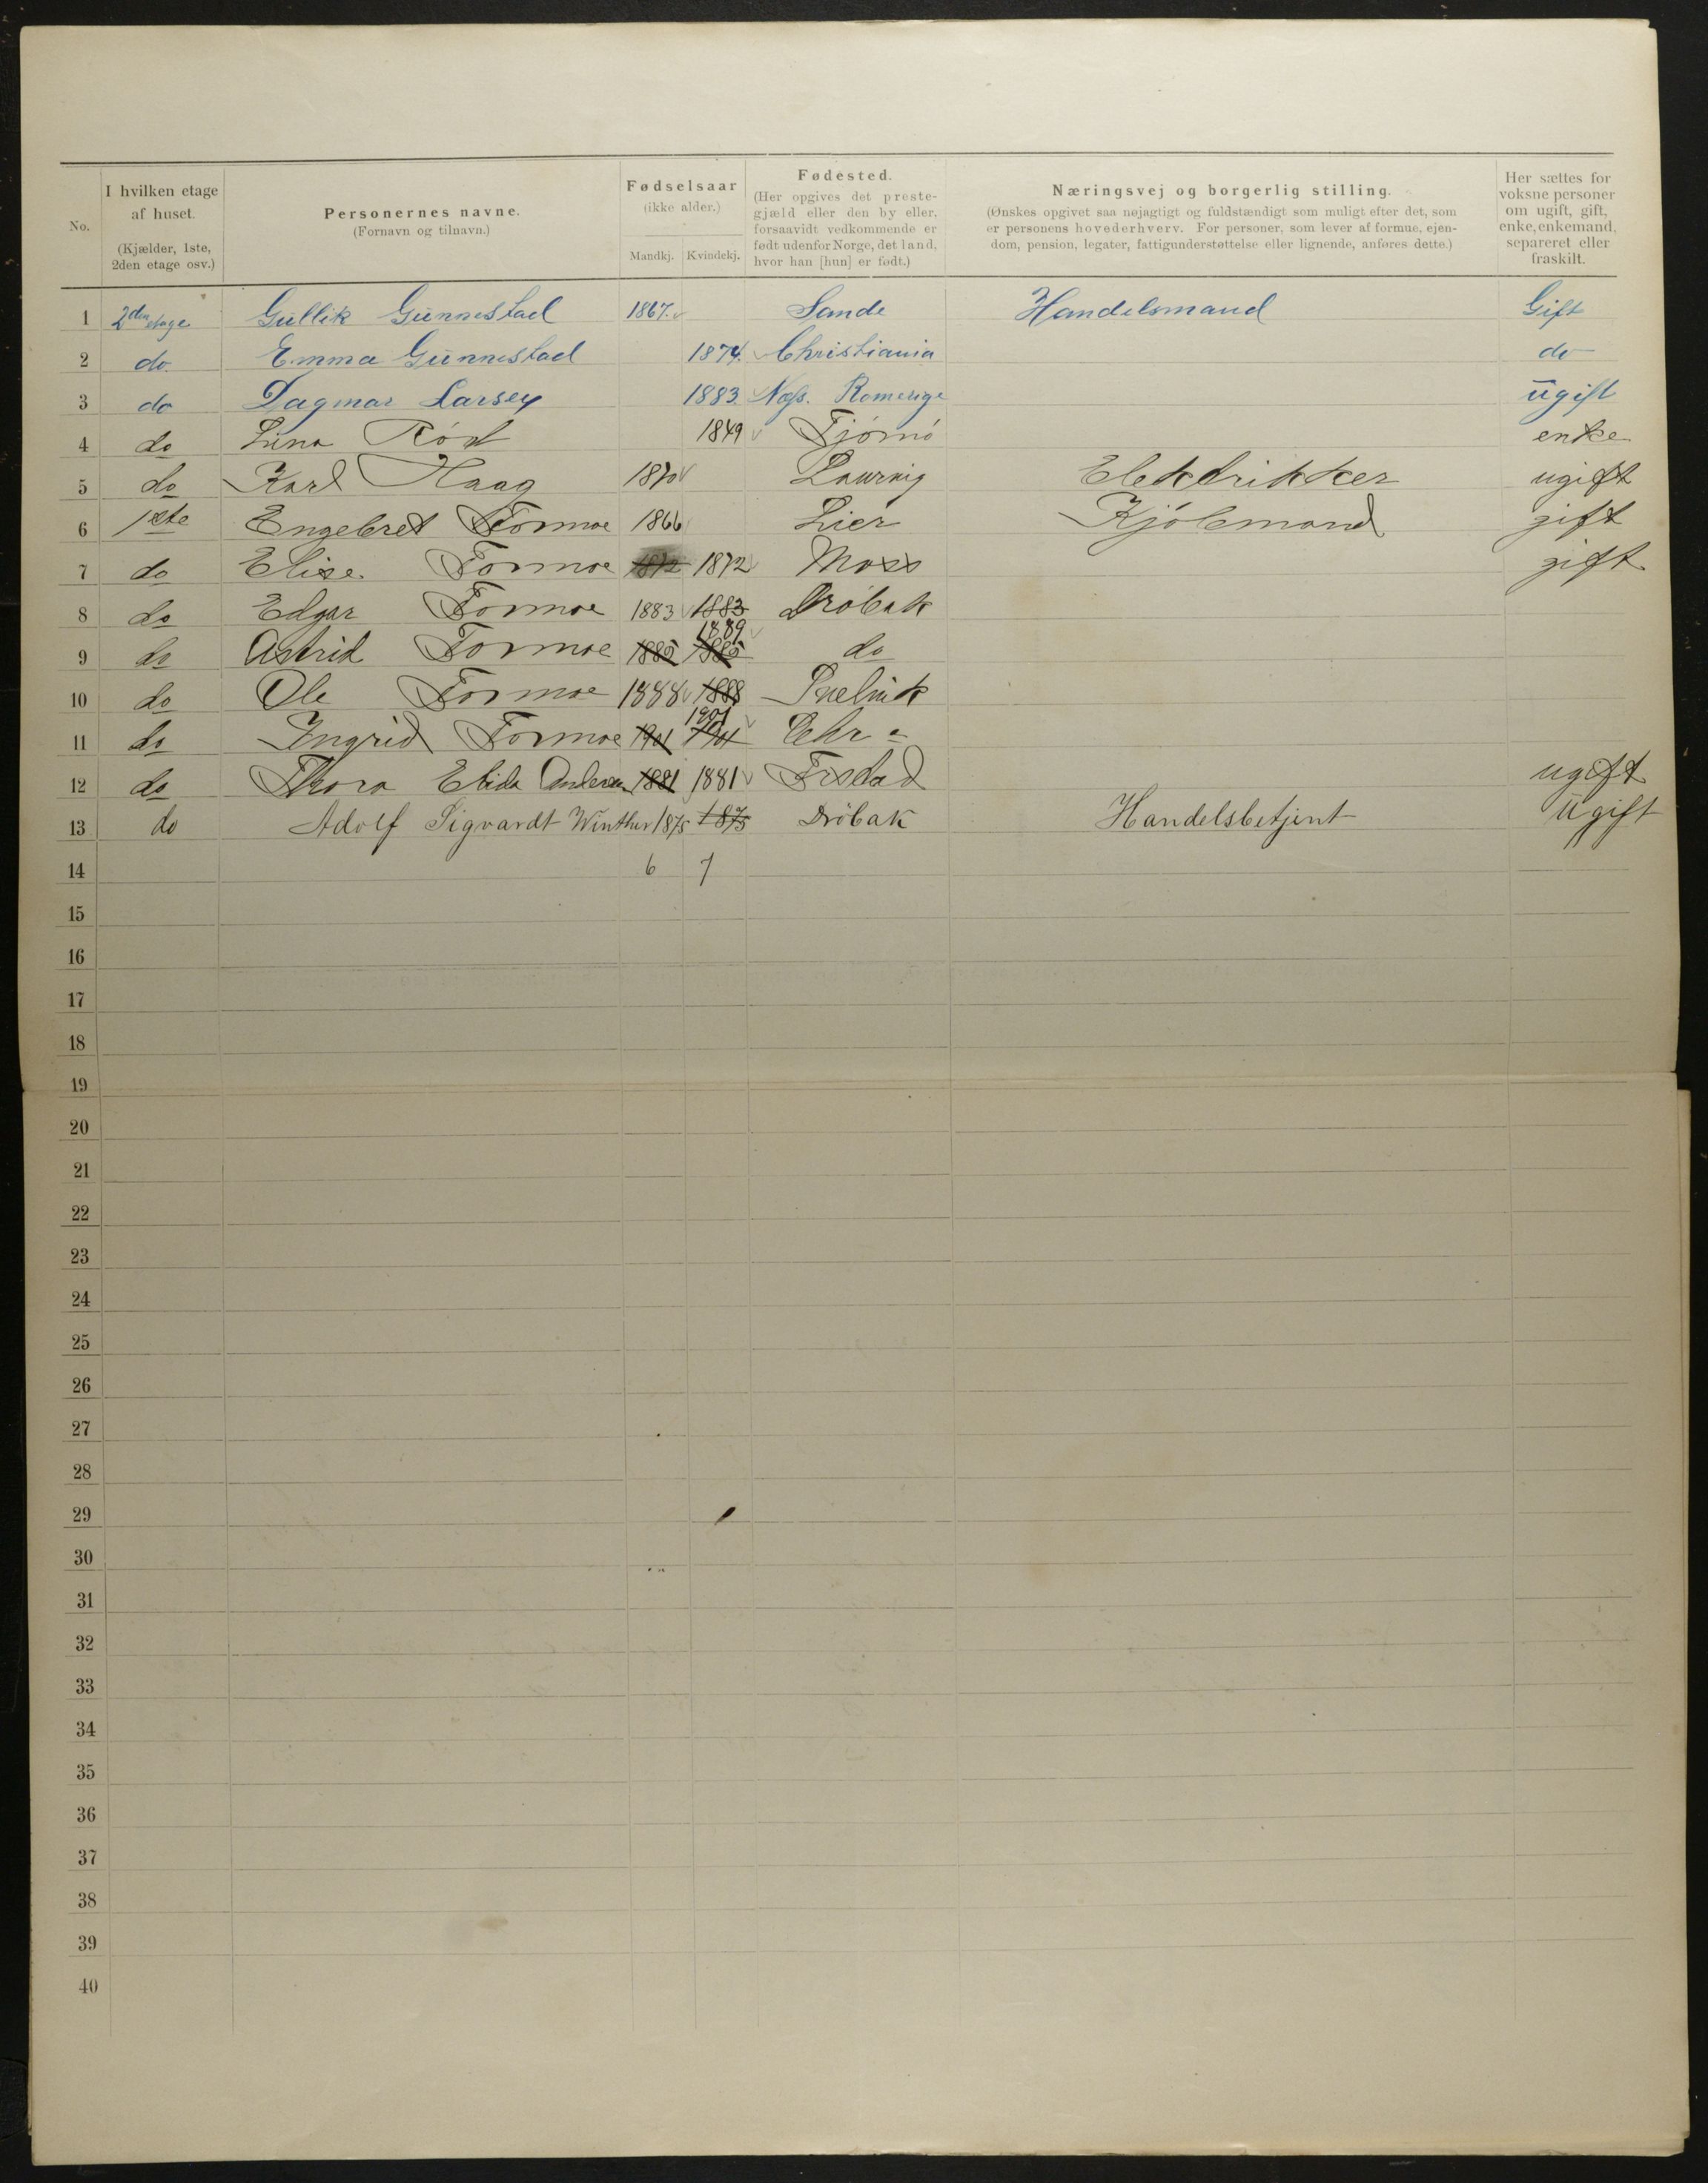 No.
I hvilken etage af huset. (Kjælder, 1ste, 2den etage osv.)
Personernes navne. (Fornavn og tilnavn.)
Fødselsaar (ikke alder.) Mandkj. Kvindekj.
Fødested. (Her opgives det prestegjæld eller den by eller, forsaavidt vedkommende er født udenfor Norge, det land, hvor han [hun] er født.)
Næringsvej og borgerlig stilling. (Ønskes opgivet saa nøjagtigt og fuldstændigt som muligt efter det, som er personens hovederhverv. For personer, som lever af formue, ejendom, pension, legater, fattigunderstøttelse eller lignende, anføres dette.)
Her sættes for voksne personer om ugift, gift, enke, enkemand, separeret eller fraskilt.
1 2den etage Gullik Gunnestad 1867. Sande Handelsmand Gift
2 do. Emma Gunnestad 1874. Christiania do
3 do Dagmar Larsen 1883 Næs. Romerige ugift
4 do Lina Röd 1849 Tjömö enke
5 do Karl Haag 1870 Laurvig Elektrikker ugift
6 1ste Engebret Formoe 1866 Lier Kjöbmand gift
7 do Elise Formoe 1872 1872 Moss gift
8 do Edgar Formoe 1883 1883 Dröbak
9 do Astrid Formoe 1885 1885 1889 do
10 do Ole Formoe 1888 1888
11 do Ingrid Formoe 1901 1901 1901 Chr a
12 do Thora Elida Andersen 1881 1881 ugift
13 do Adolf Sigvardt Winther 1875 1875 Dröbak Handelsbetjent Ugift
14 6 7
15
16
17
18
19
20
21
22
23
24
25
26
27
28
29
30
31
32
33
34
35
36
37
38
39
40